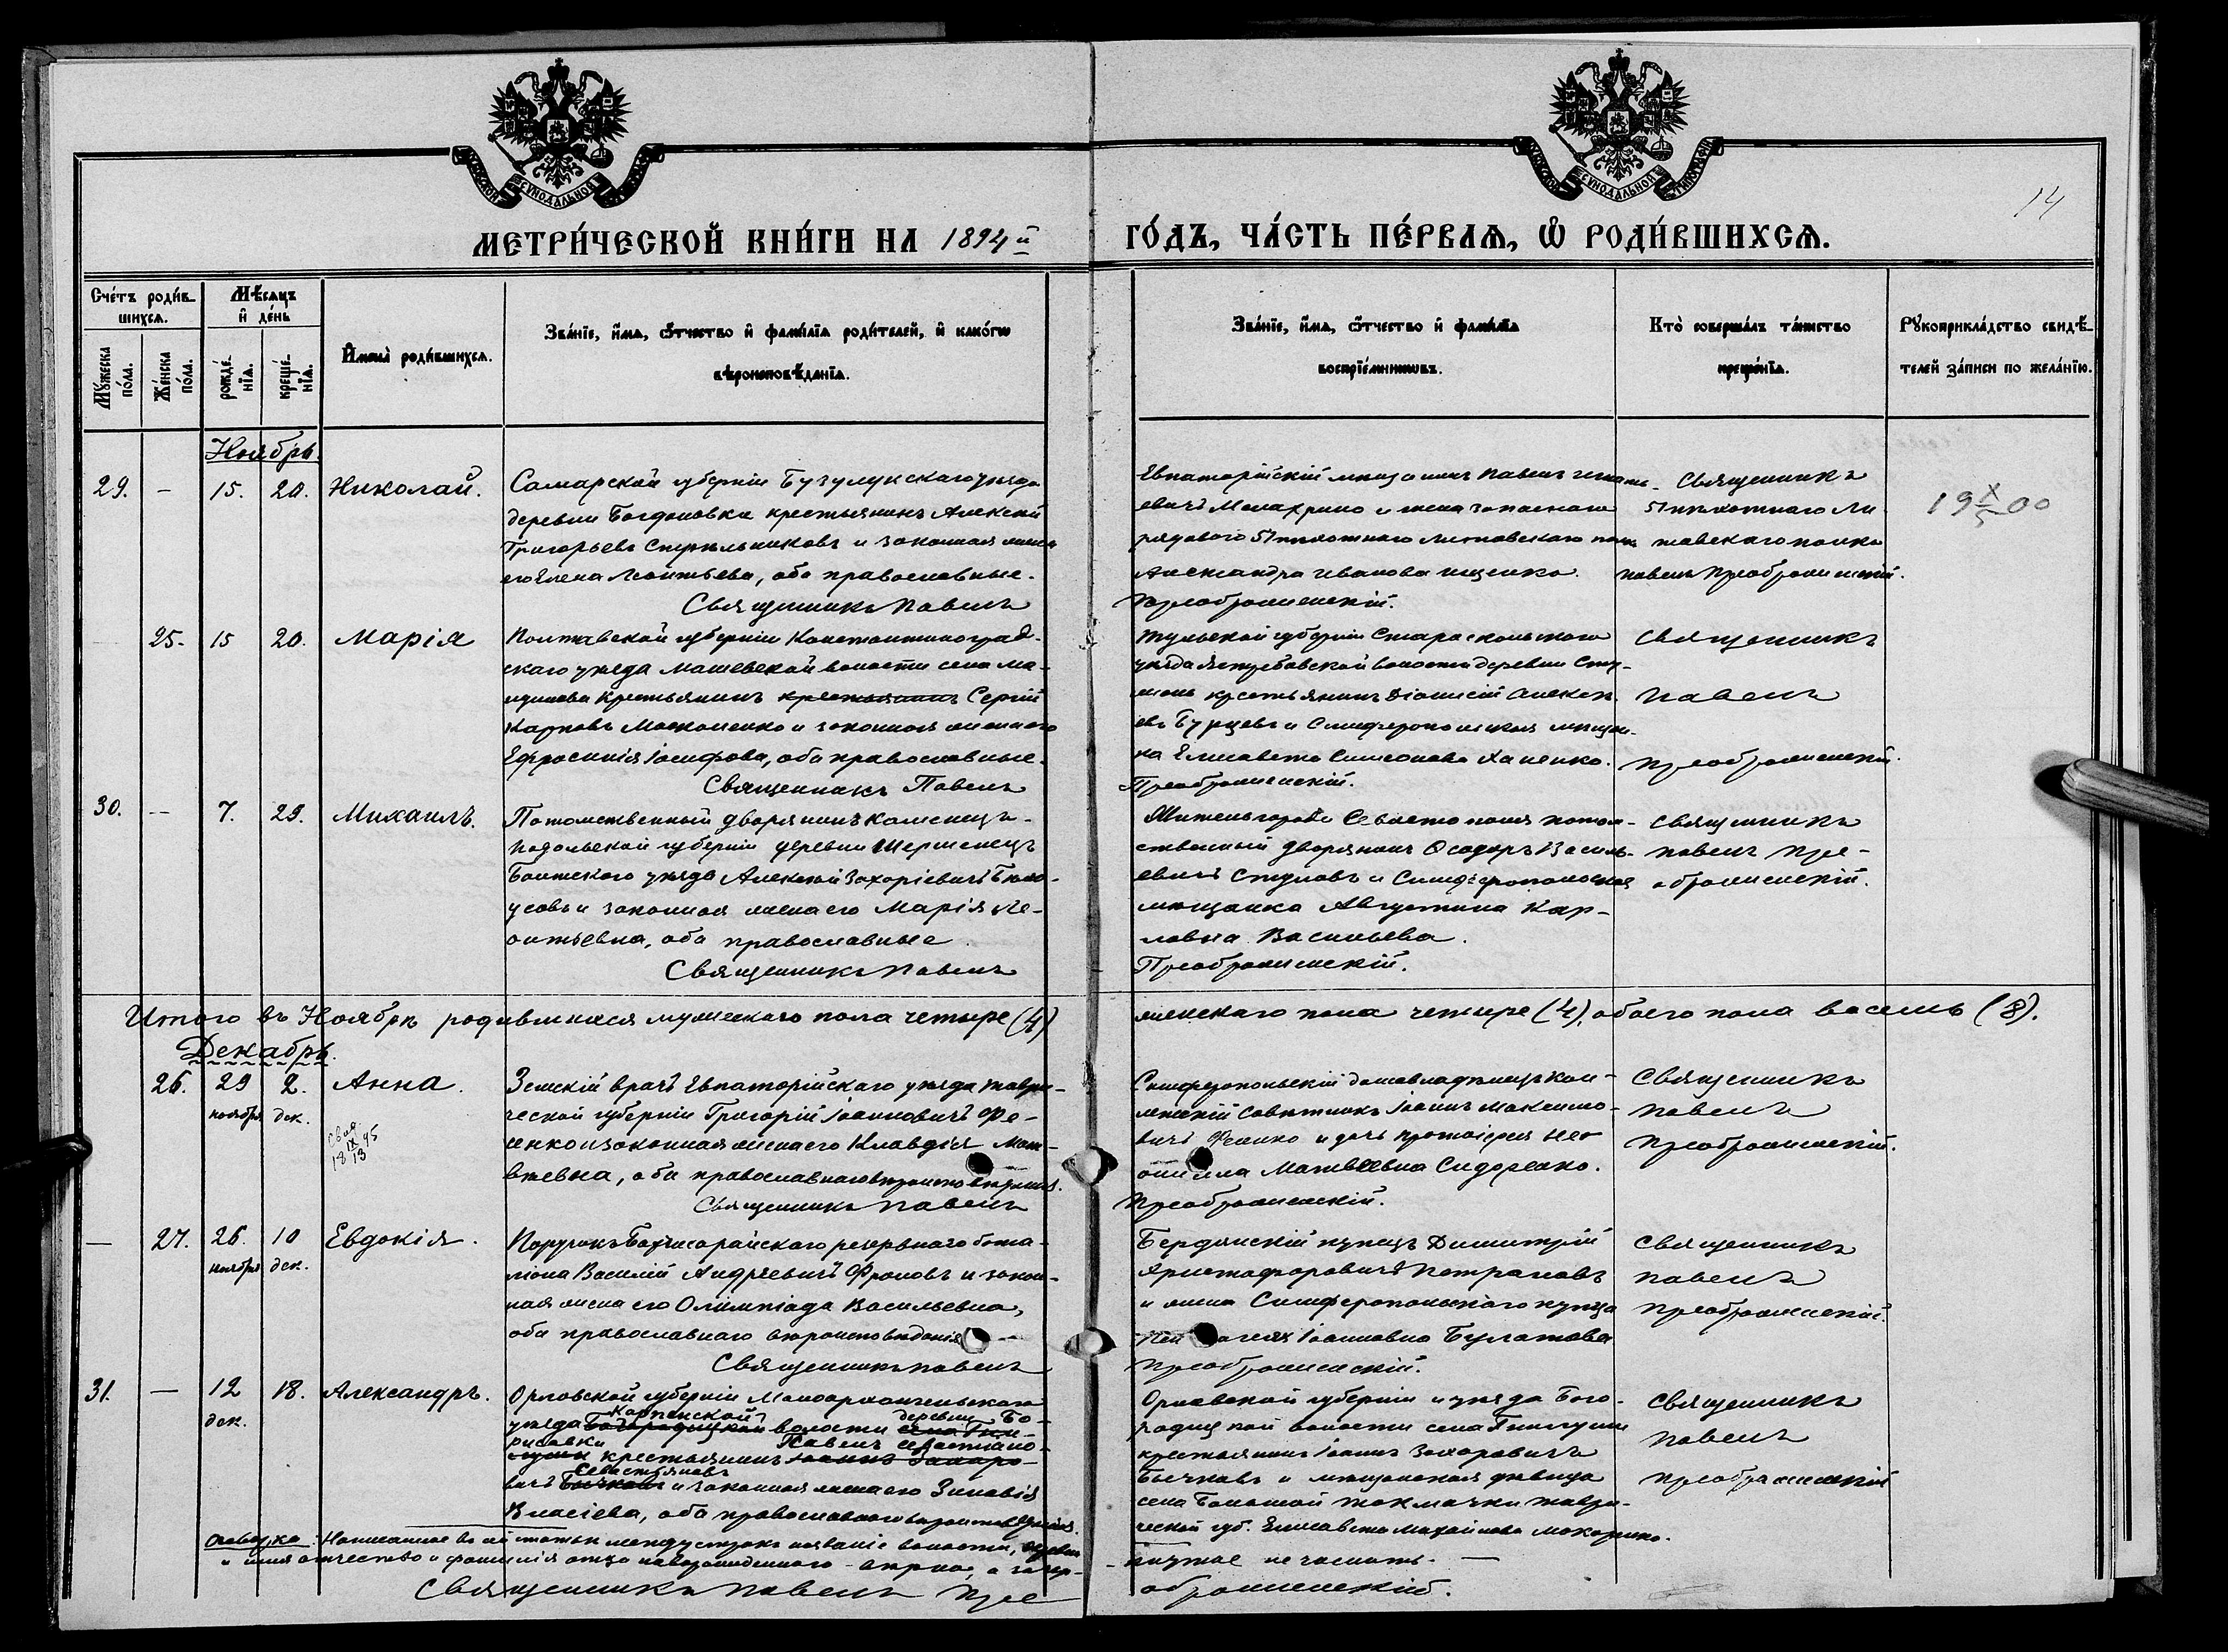 14
МЕТРИ́ЧЕСКОЙ КНИ́ГИ НА 1894й ГО́ДЪ, ЧА́СТЬ ПЕ́РВАѦ, Ѡ РОДИ́ВШИХСѦ.
Счётъ роди́в-
шихся.
Мꙋ́жеска по́ла.
Же́нска по́ла.
Мѣ́сяцъ и де́нь
рожде́нїѧ.
креще́нїѧ.
Имена̀ роди́вшихсѧ.
Зва́нїе, и́мѧ, ѻ́тчество и фами́лїѧ роди́телей, и како́гѡ
вѣроисповѣ́данїѧ.
Зва́нїе, и́мѧ, ѻ́тчество и фами́лїѧ
воспрїе́мникѡвъ.
Кто̀ соверша́лъ та́инство
креще́нїѧ.
Рꙋкоприкла́дство свидѣ́-
телей за́писи по жела́нїю.
Ноябрь.
29. – 15. 20. Николай.
Самарской губерніи Бузулукскаго уѣзда
деревни Богдановки крестьянинъ Алексѣй
Григорьевъ и законная жена
его Елена Леонтьева, оба православные.
Священникъ Павелъ
Евпаторійскій мѣщанинъ Павелъ
евичъ и жена запаснаго
рядового 51 пѣхотнаго Литовскаго полка
Александра Иванова Ищенко.
Преображенскій.
Священникъ
51 пѣхотнаго Ли-
товскаго полка
Павелъ Преображенскій.
19 X/5 00
25. 15 20. Марія
Полтавской губерніи Константиноград-
скаго уѣзда Машевской волости села Ма-
крестьянинъ крестьянинъ Сергій
Карповъ и законная жена его
Ефросинія Іосифова, оба православные.
Священникъ Павелъ
Тульской губерніи Старооскольскаго
уѣзда волости деревни
крестьянинъ Діонисій Алексѣ-
евъ Бурцевъ и Симферопольская мѣщан-
ка Елисавета Симеонова Хапенко.
Преображенскій.
Священникъ
Павелъ
Преображенскій.
30. – 7. 29. Михаилъ.
Потомственный дворянинъ Каменецъ-
Подольской губерніи деревни
Балтскаго уѣзда Алексѣй Захаріевичъ Бѣло-
усовъ и законная жена его Марія Ле-
онтьевна, оба православные.
Священникъ Павелъ
Житель города Севастополя потом-
ственный дворянинъ Ѳеодоръ Василь-
евичъ и Симферопольская
мѣщанка Августина Кар-
ловна Васильева.
Преображенскій.
Священникъ
Павелъ Пре-
ображенскій.
Итого въ Ноябрѣ родившихся мужескаго пола четыре (4) женскаго пола четыре (4), обоего пола восемь (8).
Декабрь.
26. 29 ноября 2. дек. Анна.
Земскій врачъ Евпаторійскаго уѣзда Таври-
ческой губерніи Григорій Іоанновичъ Фе-
енко и законная жена его Клавдія Мат-
вѣевна, оба православнаго вѣроисповѣданія.
Священникъ Павелъ
Симферопольскій домовладѣлецъ Кол-
лежскій Совѣтникъ Іоаннъ Максимо-
вичъ и дочь протоіерея
Матвѣевна Сидоренко.
Преображенскій.
Священникъ
Павелъ
Преображенскій.
— 27. 26. ноября 10 дек. Евдокія.
Поручикъ Бахчисарайскаго резервнаго бата-
ліона Василій Андреевичъ Фроловъ и закон-
ная жена его Олимпіада Васильевна,
оба православнаго вѣроисповѣданія
Священникъ Павелъ
Бердянскій купецъ Димитрій
Христофоровичъ
и жена Симферопольскаго купца
Іоанновна Булатова
Преображенскій.
Священникъ
Павелъ
Преображенскій.
31. — 12 дек. 18. Александръ.
Орловской губерніи Малоархангельскаго
уѣзда Богородицкой волости деревни Бо-
рисовки Павелъ Севастьяно-
крестьянинъ Іоаннъ Захаро-
Севастьяновъ
вичъ Бычковъ и законная жена его Зиновія
Власіева, оба православнаго вѣроисповѣданія.
Орловской губерніи и уѣзда Бого-
родицкой волости села
крестьянинъ Іоаннъ Захаровичъ
Бычковъ и мѣщанская дѣвица
села Большой Токмачки Таври-
ческой губ. Елисавета Михайлова Макаренко.
Священникъ
Павелъ
Преображенскій
Оговорка: Написанное въ сей статьѣ между строкъ названіе волости, деревни
и имя отчество и фамилія отца новорожденнаго – вѣрно, а зачер-
кнутое не читать. —
Священникъ Павелъ Пре
ображенскій.